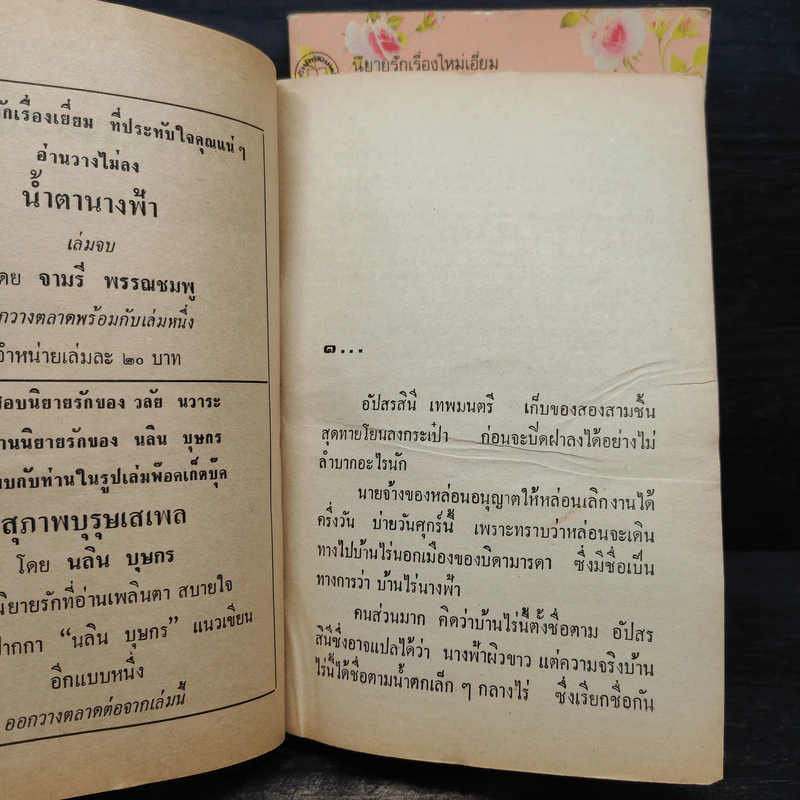 นิยายรักเรื่องใหม่เอี่ยม
รักเรื่องเยี่ยม ที่ประทับใจคุณแน่ ๆ
อ่านวางไม่ลง
น้ำตานางฟ้า
เล่มจบ
โดย จามรี พรรณชมพู
วางตลาดพร้อมกับเล่มหนึ่ง
จำหน่ายเล่มละ ๒๐ บาท
นิยายรักของ วลัย นวาระ
นิยายรักของ นลิน บุษกร
กับท่านในรูปเล่มพ๊อคเก็ตบุ๊ค
สุภาพบุรุษเสเพล
โดย นลิน บุษกร
นิยายรักที่อ่านเพลินตา สบายใจ
ปากกา “นลิน บุษกร” แนวเขียน
อีกแบบหนึ่ง
ออกวางตลาดต่อจากเล่มนี้
๑...
อัปสรสินี เทพมนตรี เก็บของสองสามชิ้น
สุดท้ายโยนลงกระเป๋า ก่อนจะปิดฝาลงได้อย่างไม่
ลำบากอะไรนัก
นายจ้างของหล่อนอนุญาตให้หล่อนเลิกงานได้
ครึ่งวัน บ่ายวันศุกร์นี้ เพราะทราบว่าหล่อนจะเดิน
ทางไปบ้านไร่นอกเมืองของบิดามารดา ซึ่งมีชื่อเป็น
ทางการว่า บ้านไร่นางฟ้า
คนส่วนมาก คิดว่าบ้านไร่นี้ตั้งชื่อตาม อัปสร
สินีซึ่งอาจแปลได้ว่า นางฟ้าผิวขาว แต่ความจริงบ้าน
ไร่นี้ได้ชื่อตามน้ำตกเล็ก ๆ กลางไร่ ซึ่งเรียกชื่อกัน